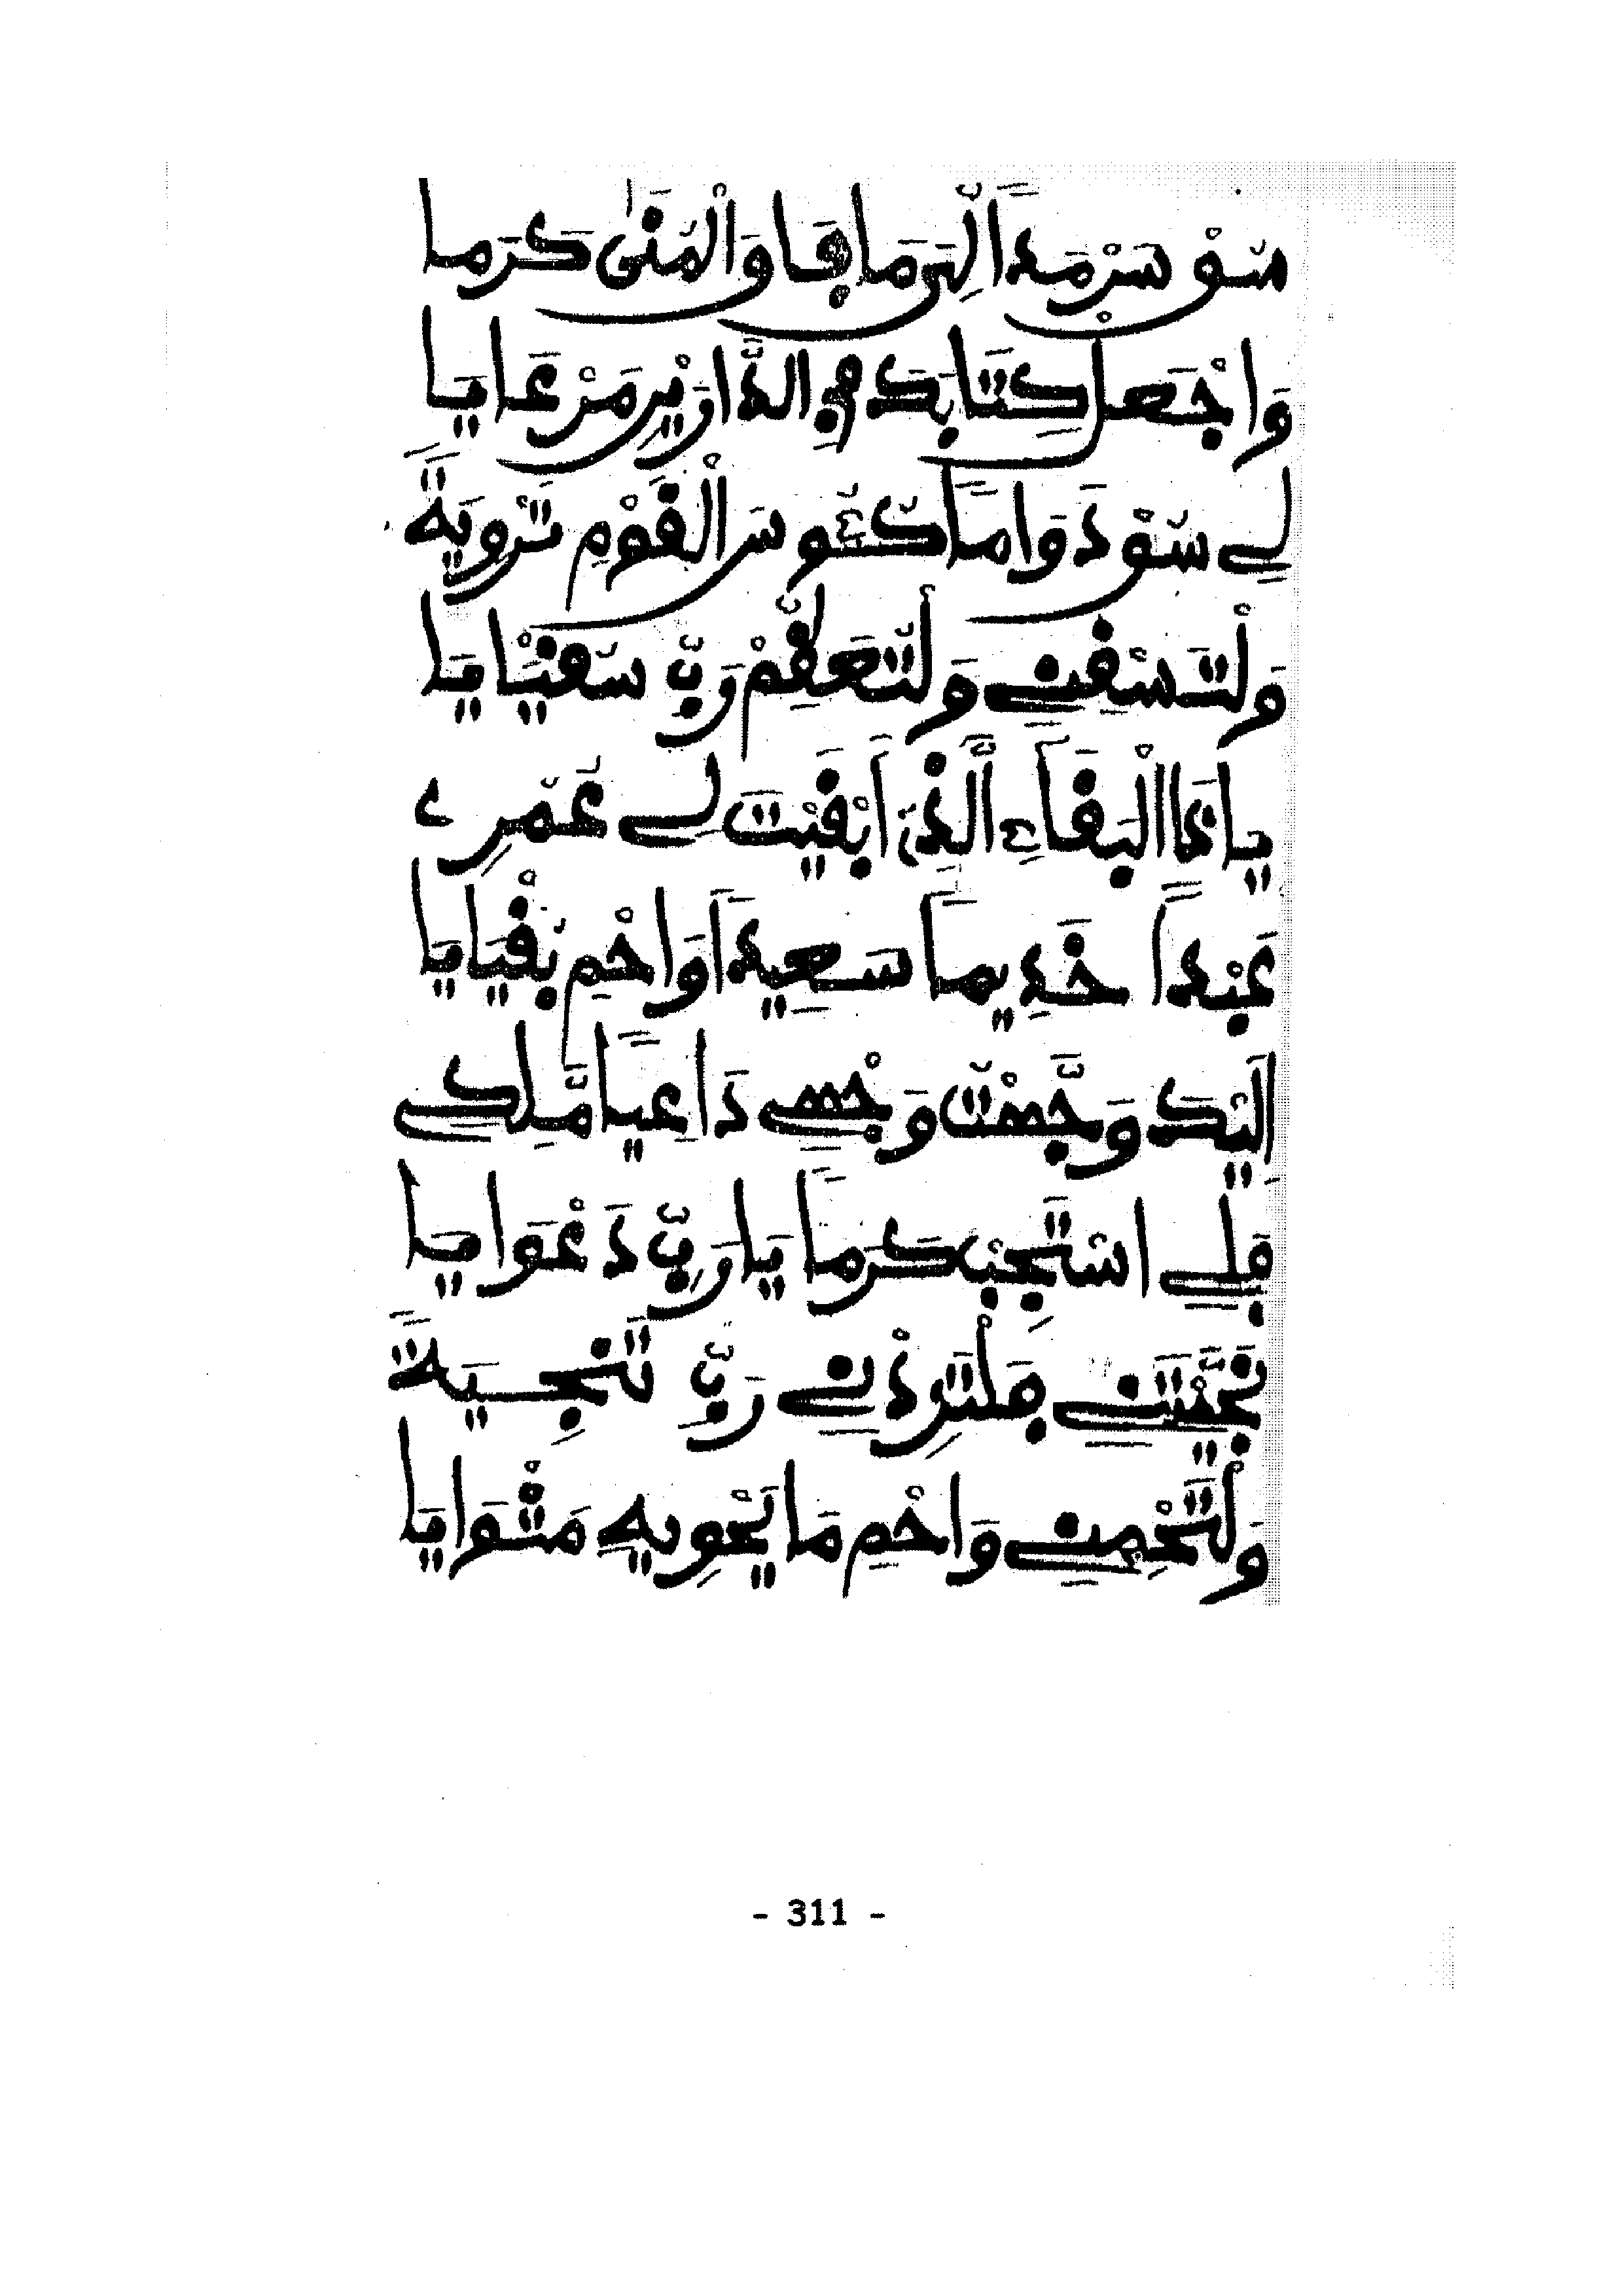 سُقْ سَرْمَداً إِلَىَّ مَا فَاقَ الْمُنَىٰ كَرَمَا
وَاجْعَلْ كِتَابَكَ فِي الدَّارَيْنِ مَرْعَايَا
لِي سُقْ دَوَاماً كُئُوسَ الْقَوْمِ تَرْوِيَةً
وَلْتَسْقِنِي وَلْتَعِظْمْ رَبِّ سُقْيَايَا
يَا ذَا الْبَقَاءِ الَّذِي أَبْقَيْتَ لِي عُمُرِي
عَبْداً خَدِيماً سَعِيداً وَاحْمِ بُقْيَايَا
إِلَيْكَ وَجَّهْتُ وَجْهِي دَاعِياً مَّلِكِي
فَلِي اسْتَجِبْ كَرَماً يَا رَبِّ دَعْوَايَا
نَجَّيْتَنِي فَلْتَزِدْنِي رَبِّ تَنْجِيَةً
وَلْتَحْمِنِي وَاحْمِ مَا يَحْوِيهِ مَثْوَايَا
- 311 -